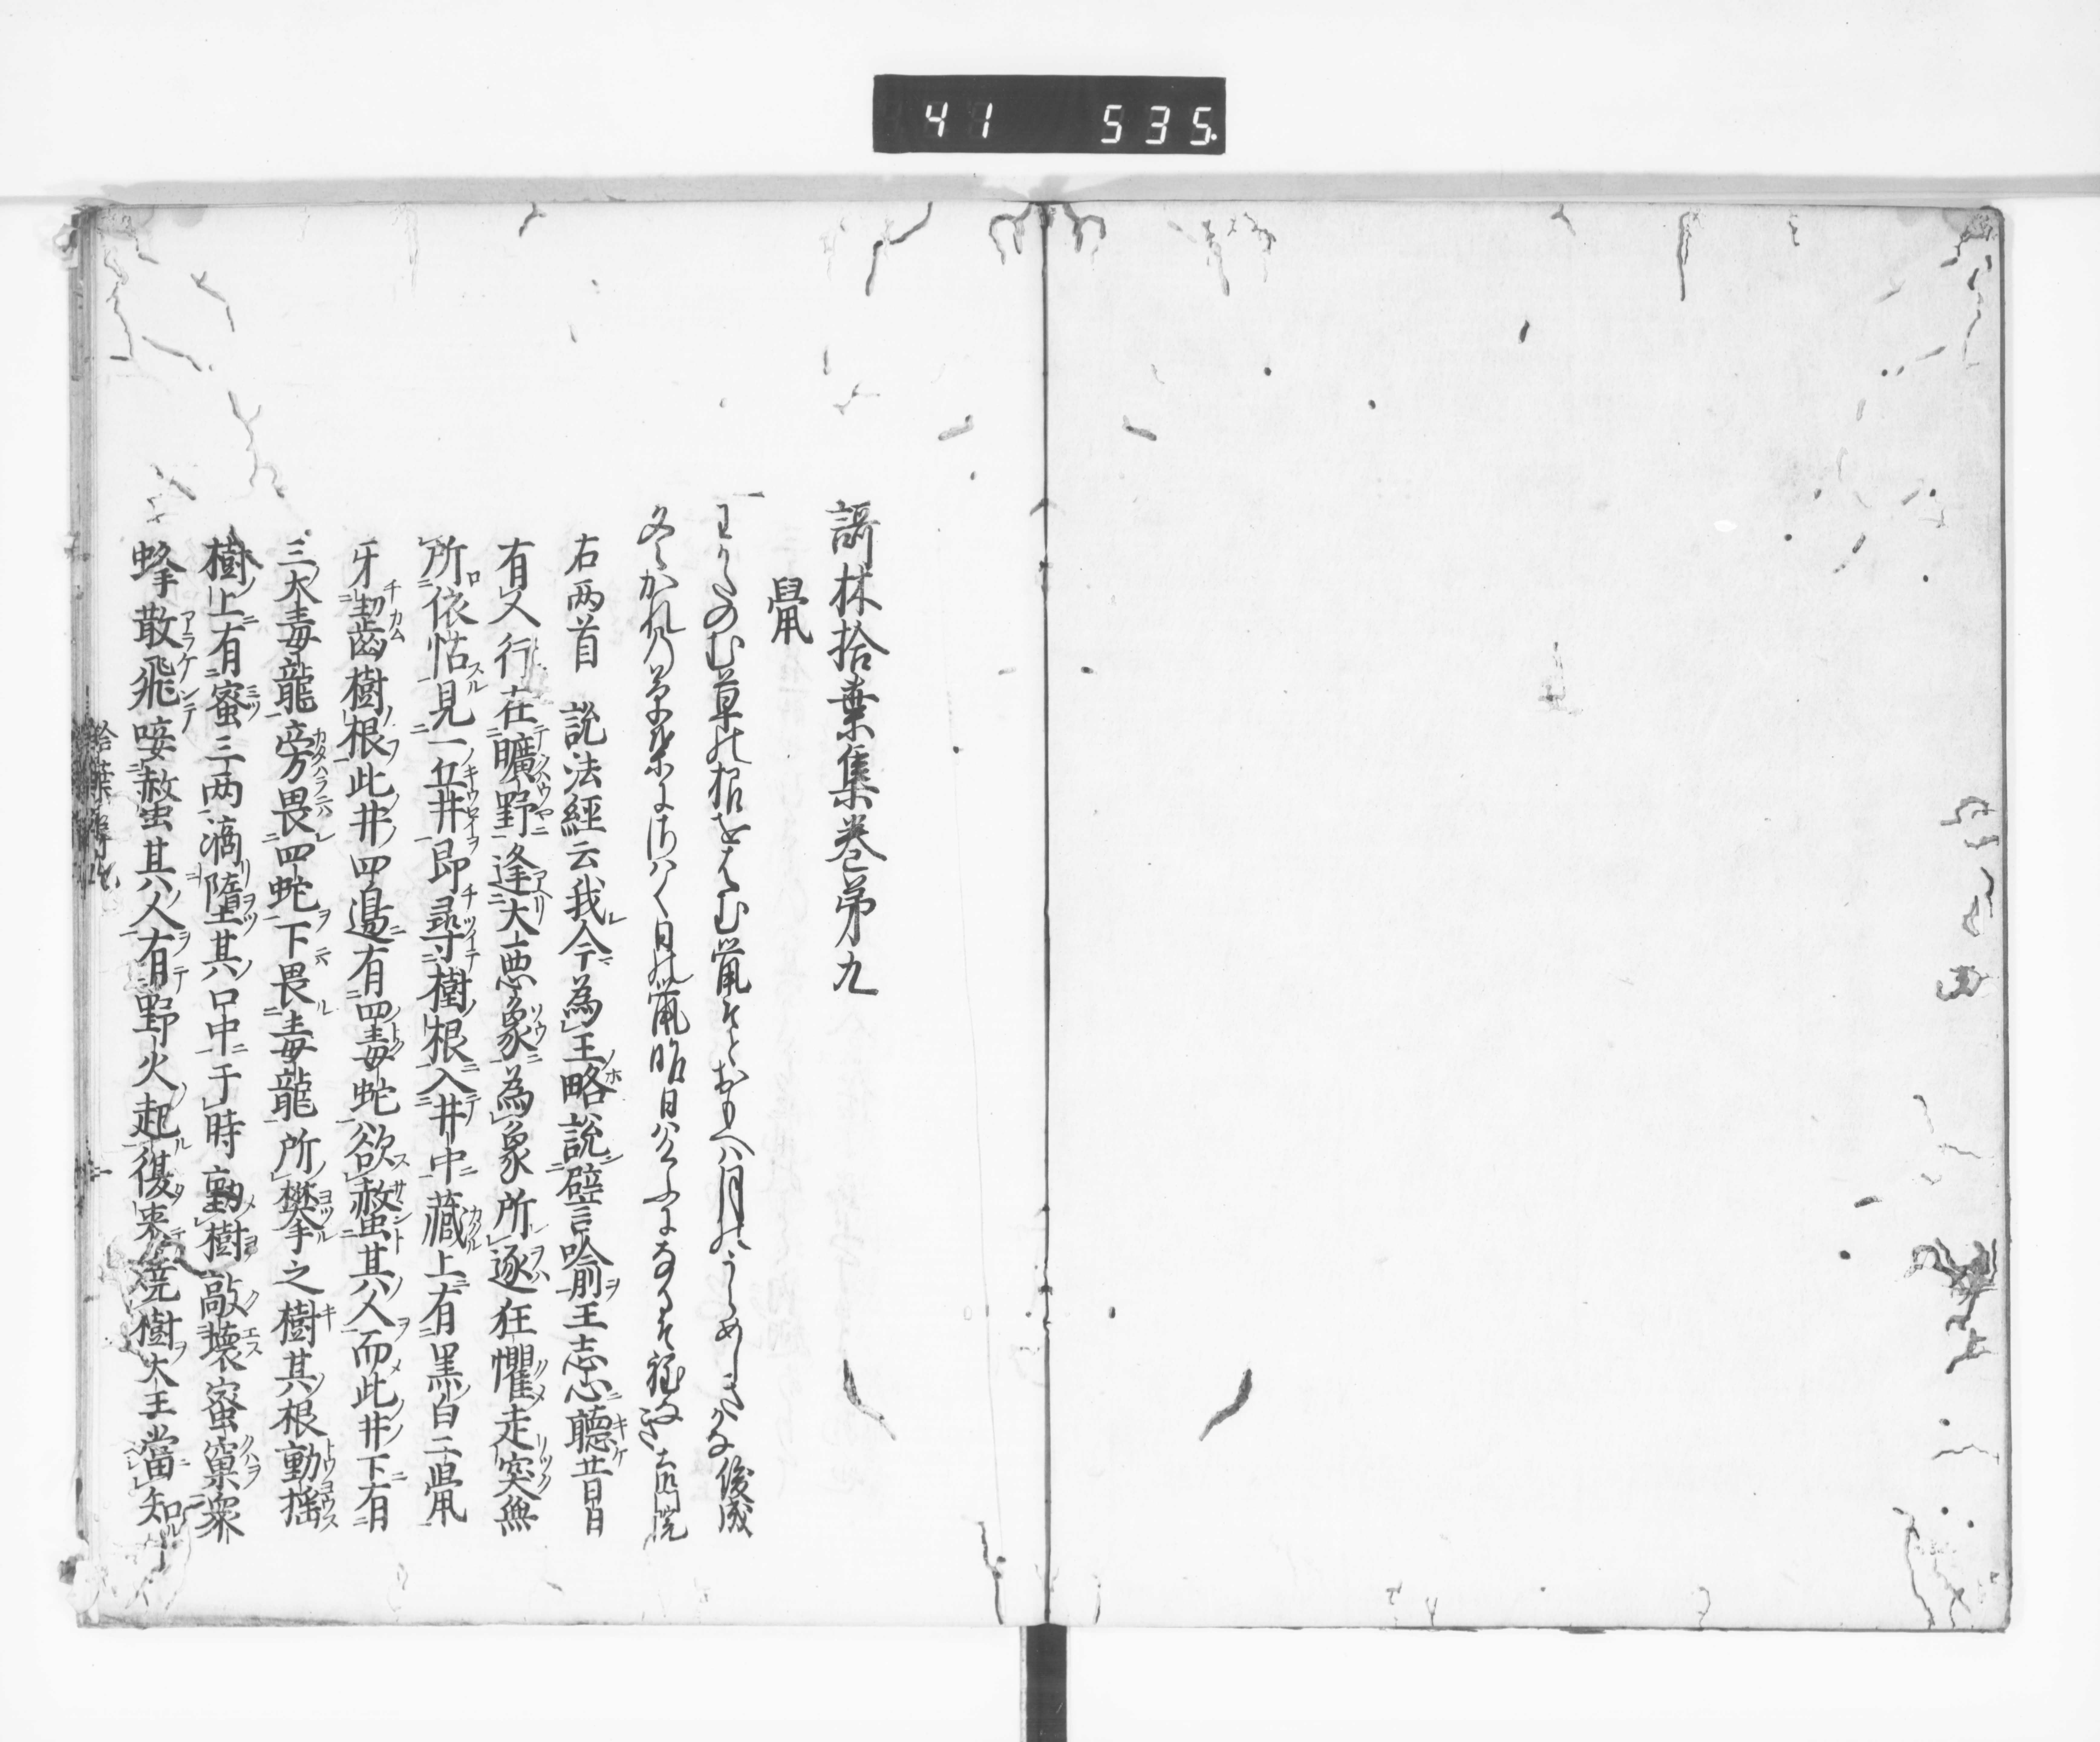 41 535
謌林拾葉集巻第九
鼠
一 わかたのむ草の根をはむ鼠そとおもへハ月のうらめしきかな 俊成
冬かれの草葉によはく月の鼠昨日けふになるそ程なき
右両首 説法經云我今為王略説譬喩王志心聴昔日
有人行在曠野逢大悪象為象所逐狂懼走突無
所依怙見一丘井即尋樹根入井中藏上有黒白二鼠
牙齧樹根此井四邊有四毒蛇欲螫其人而此井下有
三大毒龍旁畏四蛇下畏毒龍所攀之樹其根動揺
樹上有蜜三両滴堕其口中于時動樹敲壊蜜窠衆
蜂散飛唼螫其人有野火起復来燒樹大王當知